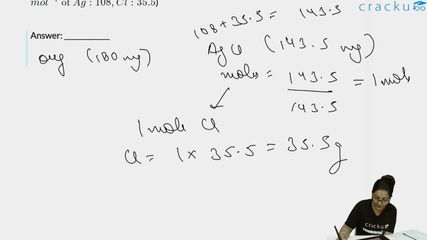 mol⁻¹ of Ag : 108, Cl : 35.5)
cracku
108 + 35.5 = 143.5
Answer:
org (180 mg)
AgCl (143.5 mg)
mols = 143.5 / 143.5 = 1 mol
1 mole Cl
Cl = 1 × 35.5 = 35.5 g
cracku